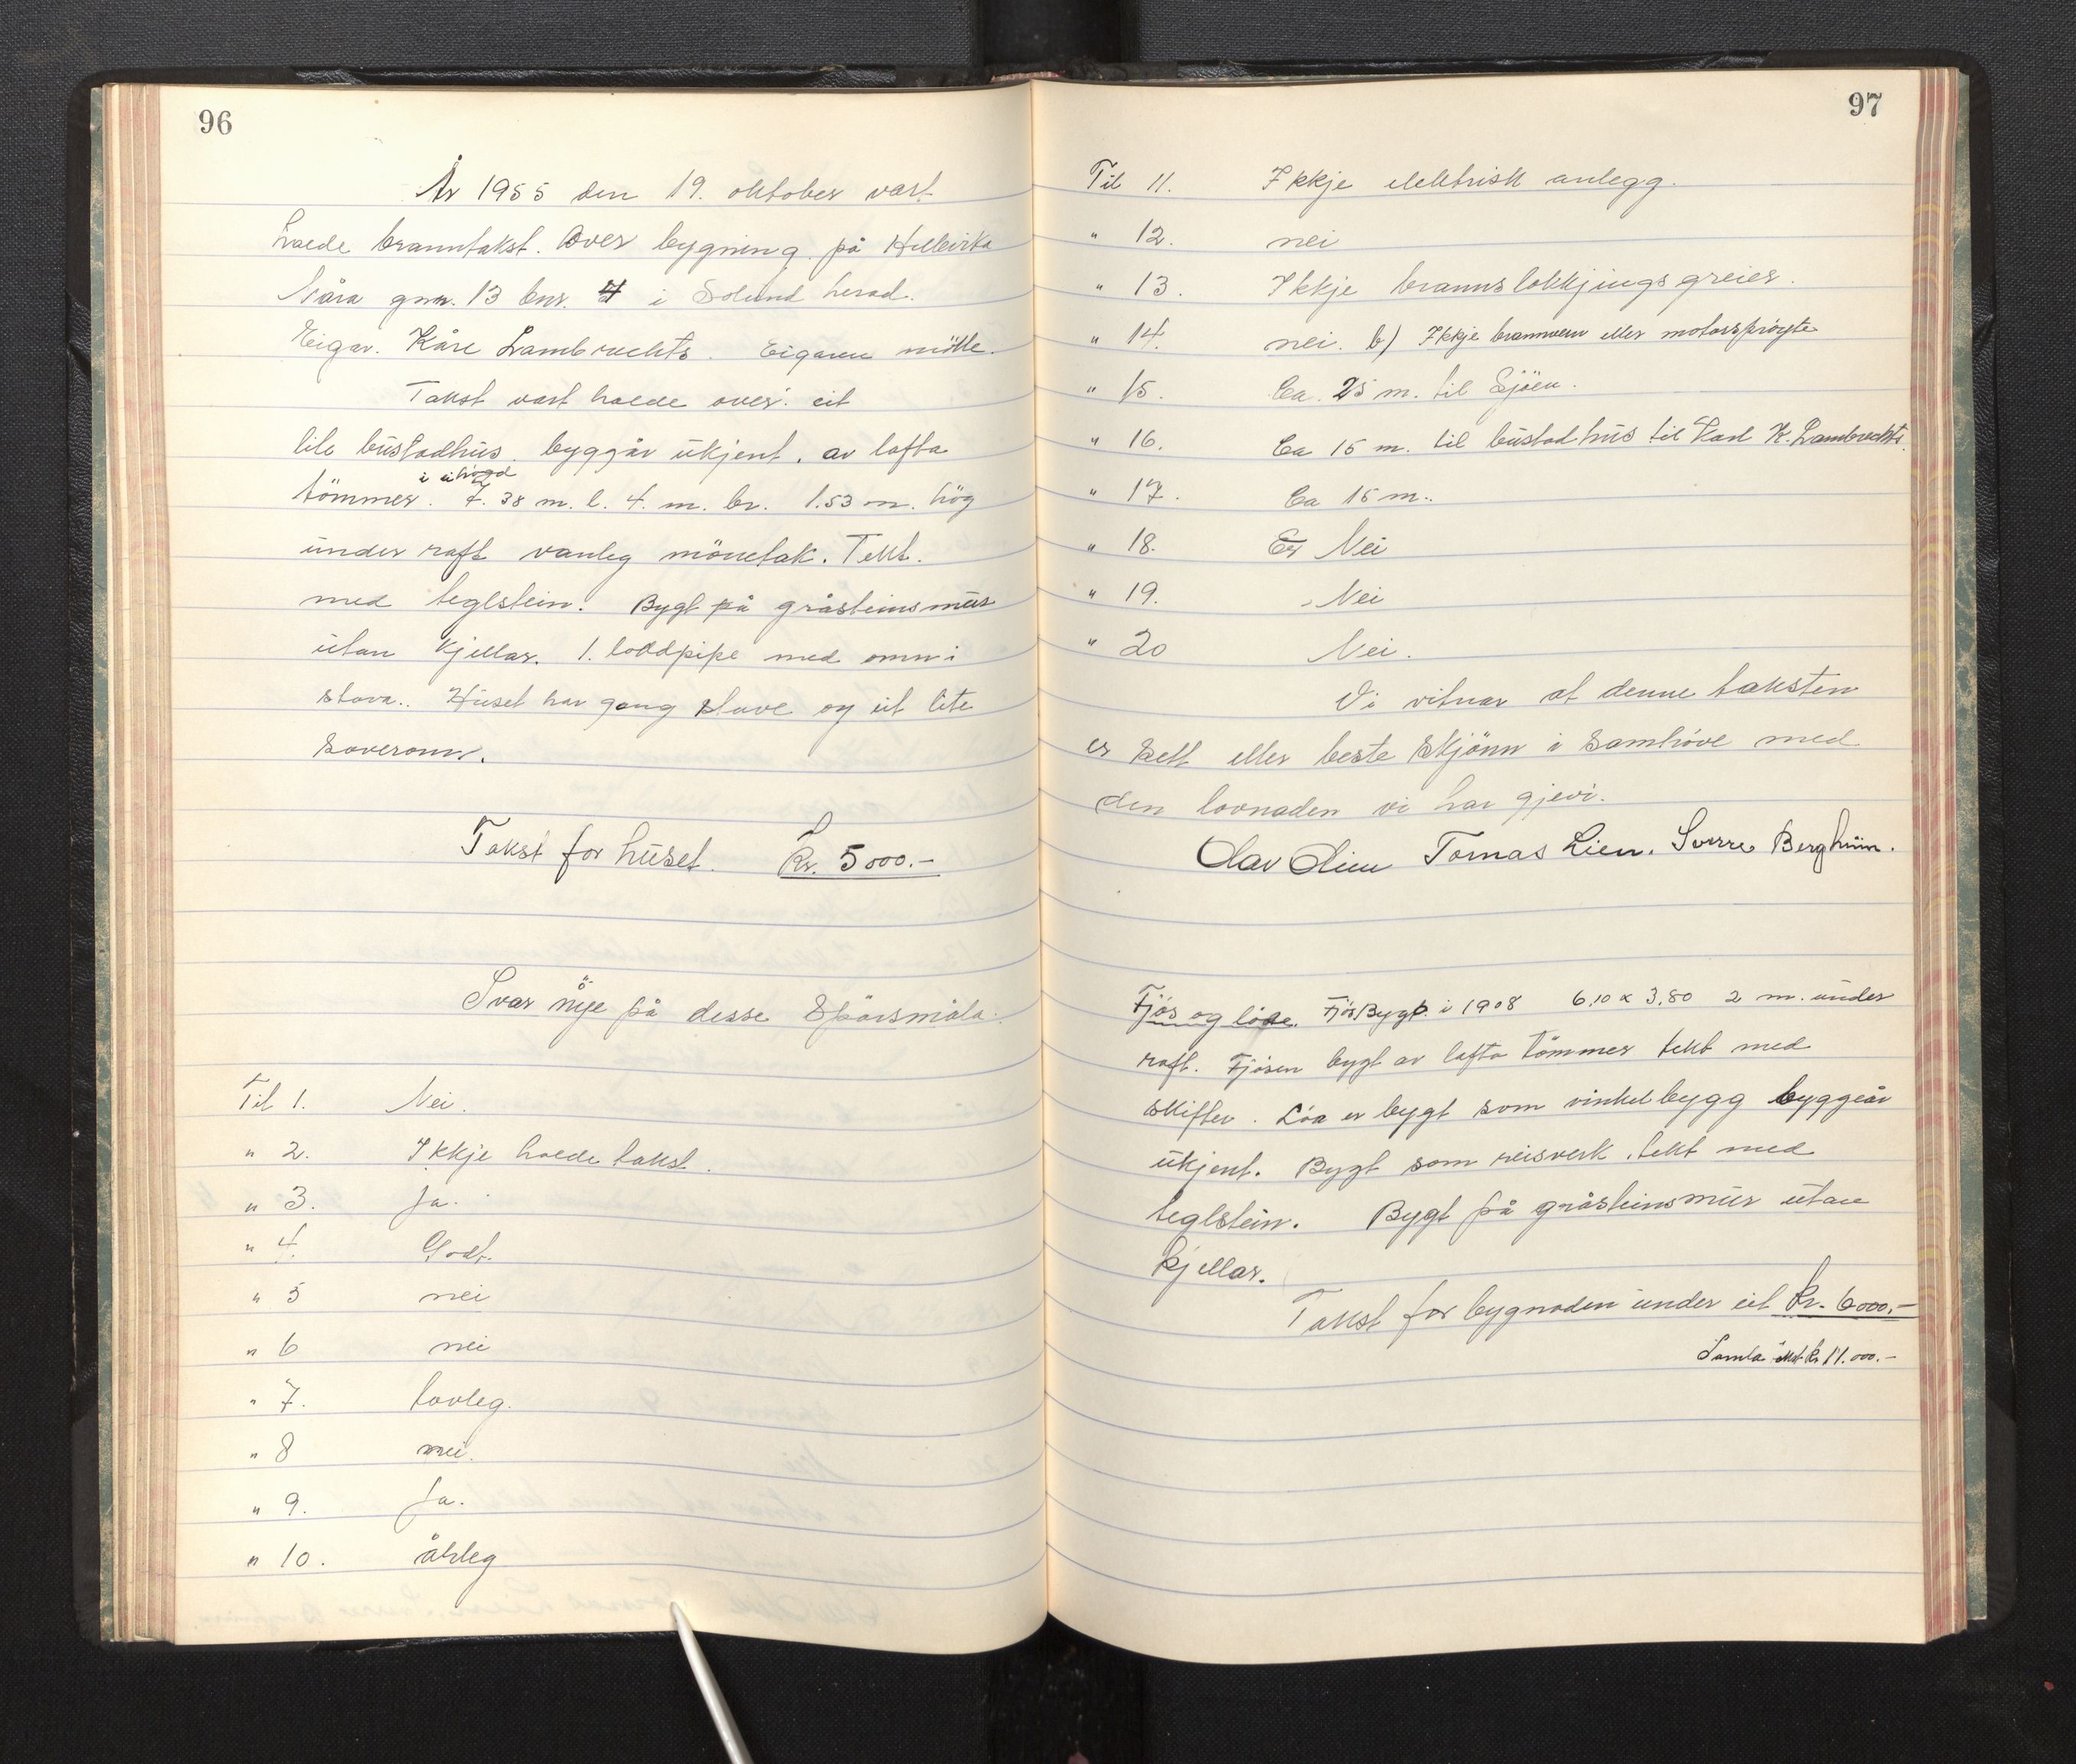 96
År 1955 den 19. oktober vart
halde branntakst. Over bygning på Hillevika
Nåra gnr. 13 bnr. 4 i Solund herad.
Eigar. Kåre Lambrechts. Eigaren mötte.
Takst vart halde over: eit
lite bustadhus. byggår ukjent. av lafta
i ei högd
tömmer. 7.38 m. l. 4. m. br. 1.53 m. hög
under raft vanleg mönetak. Tekt.
med teglstein. Bygt på gråsteinsmur
utan kjellar. 1. loddpipe med omn i
stova.. Huset har gang stove og eit lite
soverom.
Takst for huset. Kr. 5000.-
Svar på desse Spörsmåla:
Til 1. Nei.
" 2. Ikkje halde takst.
" 3. Ja.
" 4. Godt.
" 5 nei
" 6 nei
" 7. lovleg.
" 8 nei.
" 9. Ja.
" 10. årleg
97
Til 11. Ikkje elektrisk anlegg.
" 12. nei
" 13. Ikkje brannslökkjingsgreier.
" 14. nei. b) Ikkje brannvern eller motorspröyte
" 15. Ca. 25 m. til Sjöen.
" 16. Ca 15 m. til bustadhus til Karl K. Lambrechts.
" 17. Ca 15 m..
" 18. Er Nei
" 19. Nei
" 20 Nei.
Vi vitnar at denne taksten
er sett etter beste skjönn i samhöve med
den lovnaden vi har gjevi.
Olav Olem Tomas Lien. Sverre Berghim.
Fjös og löe. Fjös Bygt. i 1908 6,10 x 3,80 2 m. under
raft. Fjösen bygt av lafta tömmer tekt med
skifter. Löa er bygt som vinkelbygg byggeår
ukjent. Bygt som reisverk. tekt med
teglstein. Bygt på gråsteinsmur utan
kjellar.
Takst for bygnaden under eit Kr. 6000.-
Samla takst Kr 11.000.-